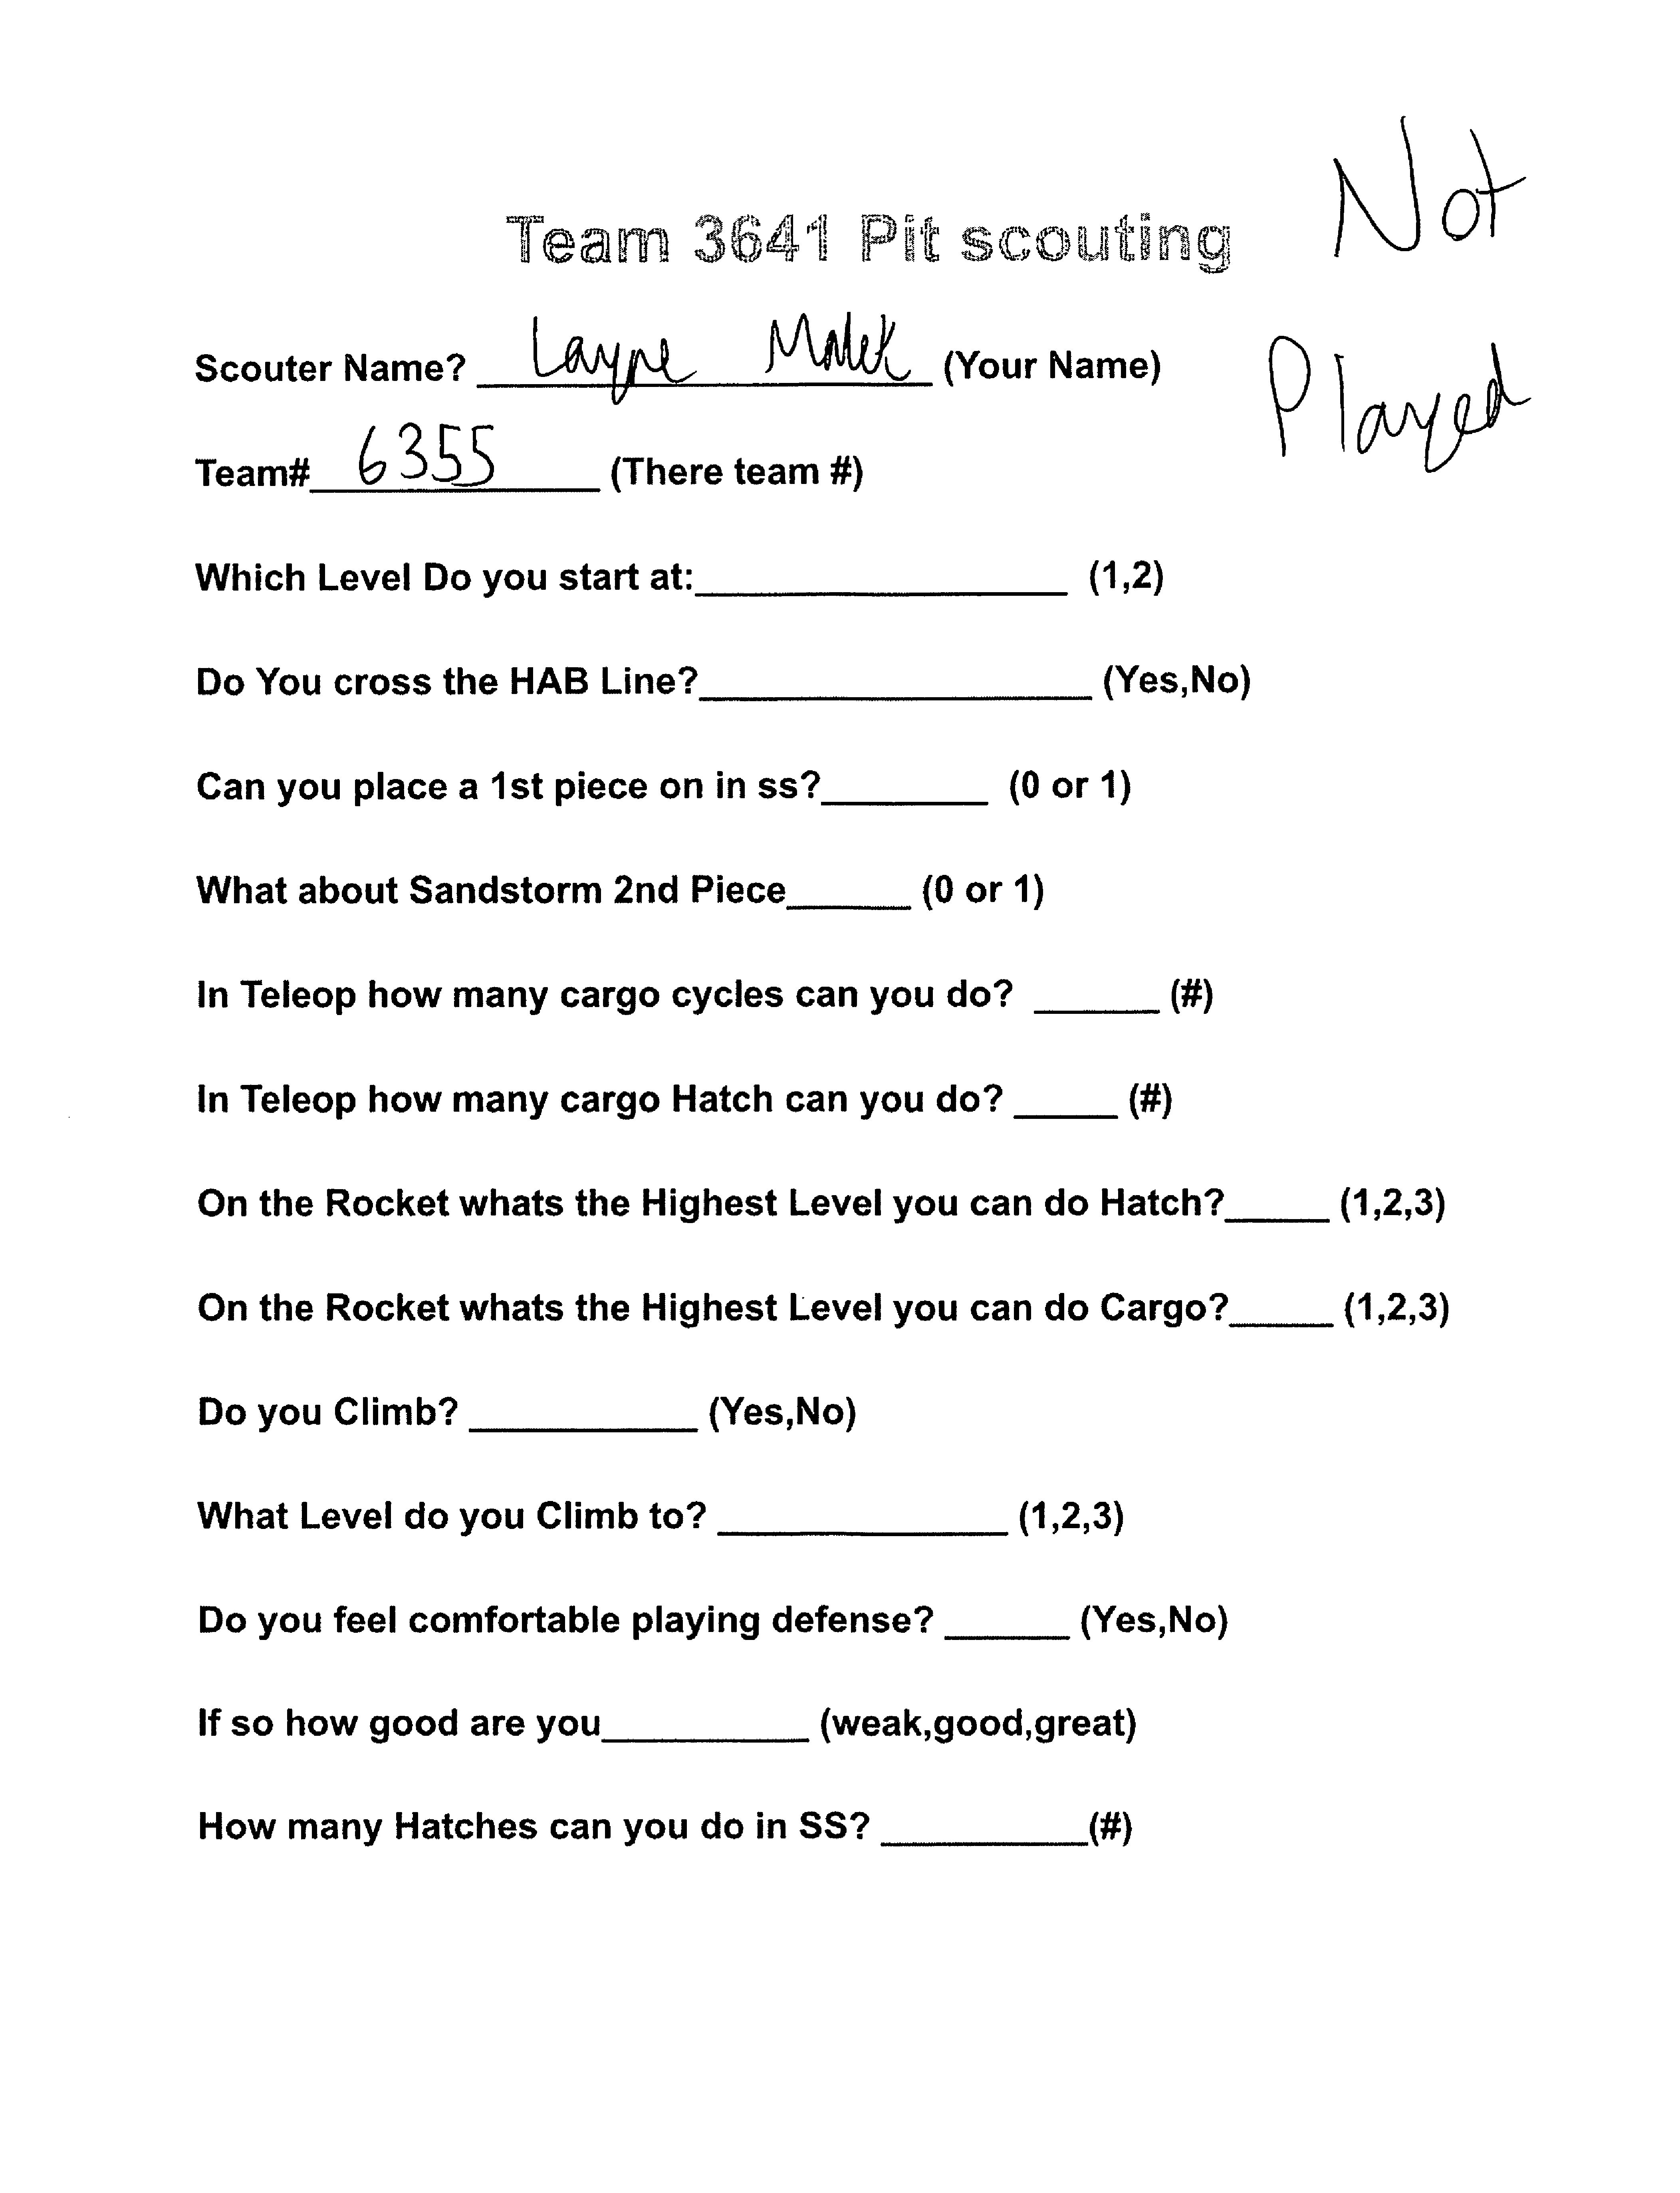 Not
Team 3641 Pit scouting
Played
Scouter Name? Layne (Your Name)
Team# 6355 (There team #)
Which Level Do you start at:____ (1,2)
Do You cross the HAB Line?____ (Yes,No)
Can you place a 1st piece on in ss?____ (0 or 1)
What about Sandstorm 2nd Piece____ (0 or 1)
In Teleop how many cargo cycles can you do? ____ (#)
In Teleop how many cargo Hatch can you do? ____ (#)
On the Rocket whats the Highest Level you can do Hatch?____ (1,2,3)
On the Rocket whats the Highest Level you can do Cargo?____ (1,2,3)
Do you Climb? ____ (Yes,No)
What Level do you Climb to? ____ (1,2,3)
Do you feel comfortable playing defense? ____ (Yes,No)
If so how good are you____ (weak,good,great)
How many Hatches can you do in SS? ____(#)